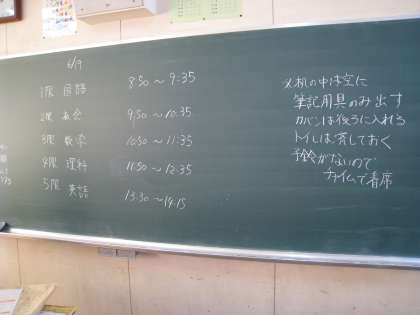 6/19
1限 国語 8:50～9:35
2限 社会 9:50～10:35
3限 数学 10:50～11:35
4限 理科 11:50～12:35
5限 英語 13:30～14:15
※机の中は空に
筆記用具のみ出す
カバンは後ろに入れる
トイレは済しておく
予鈴がないので
チャイムで着席